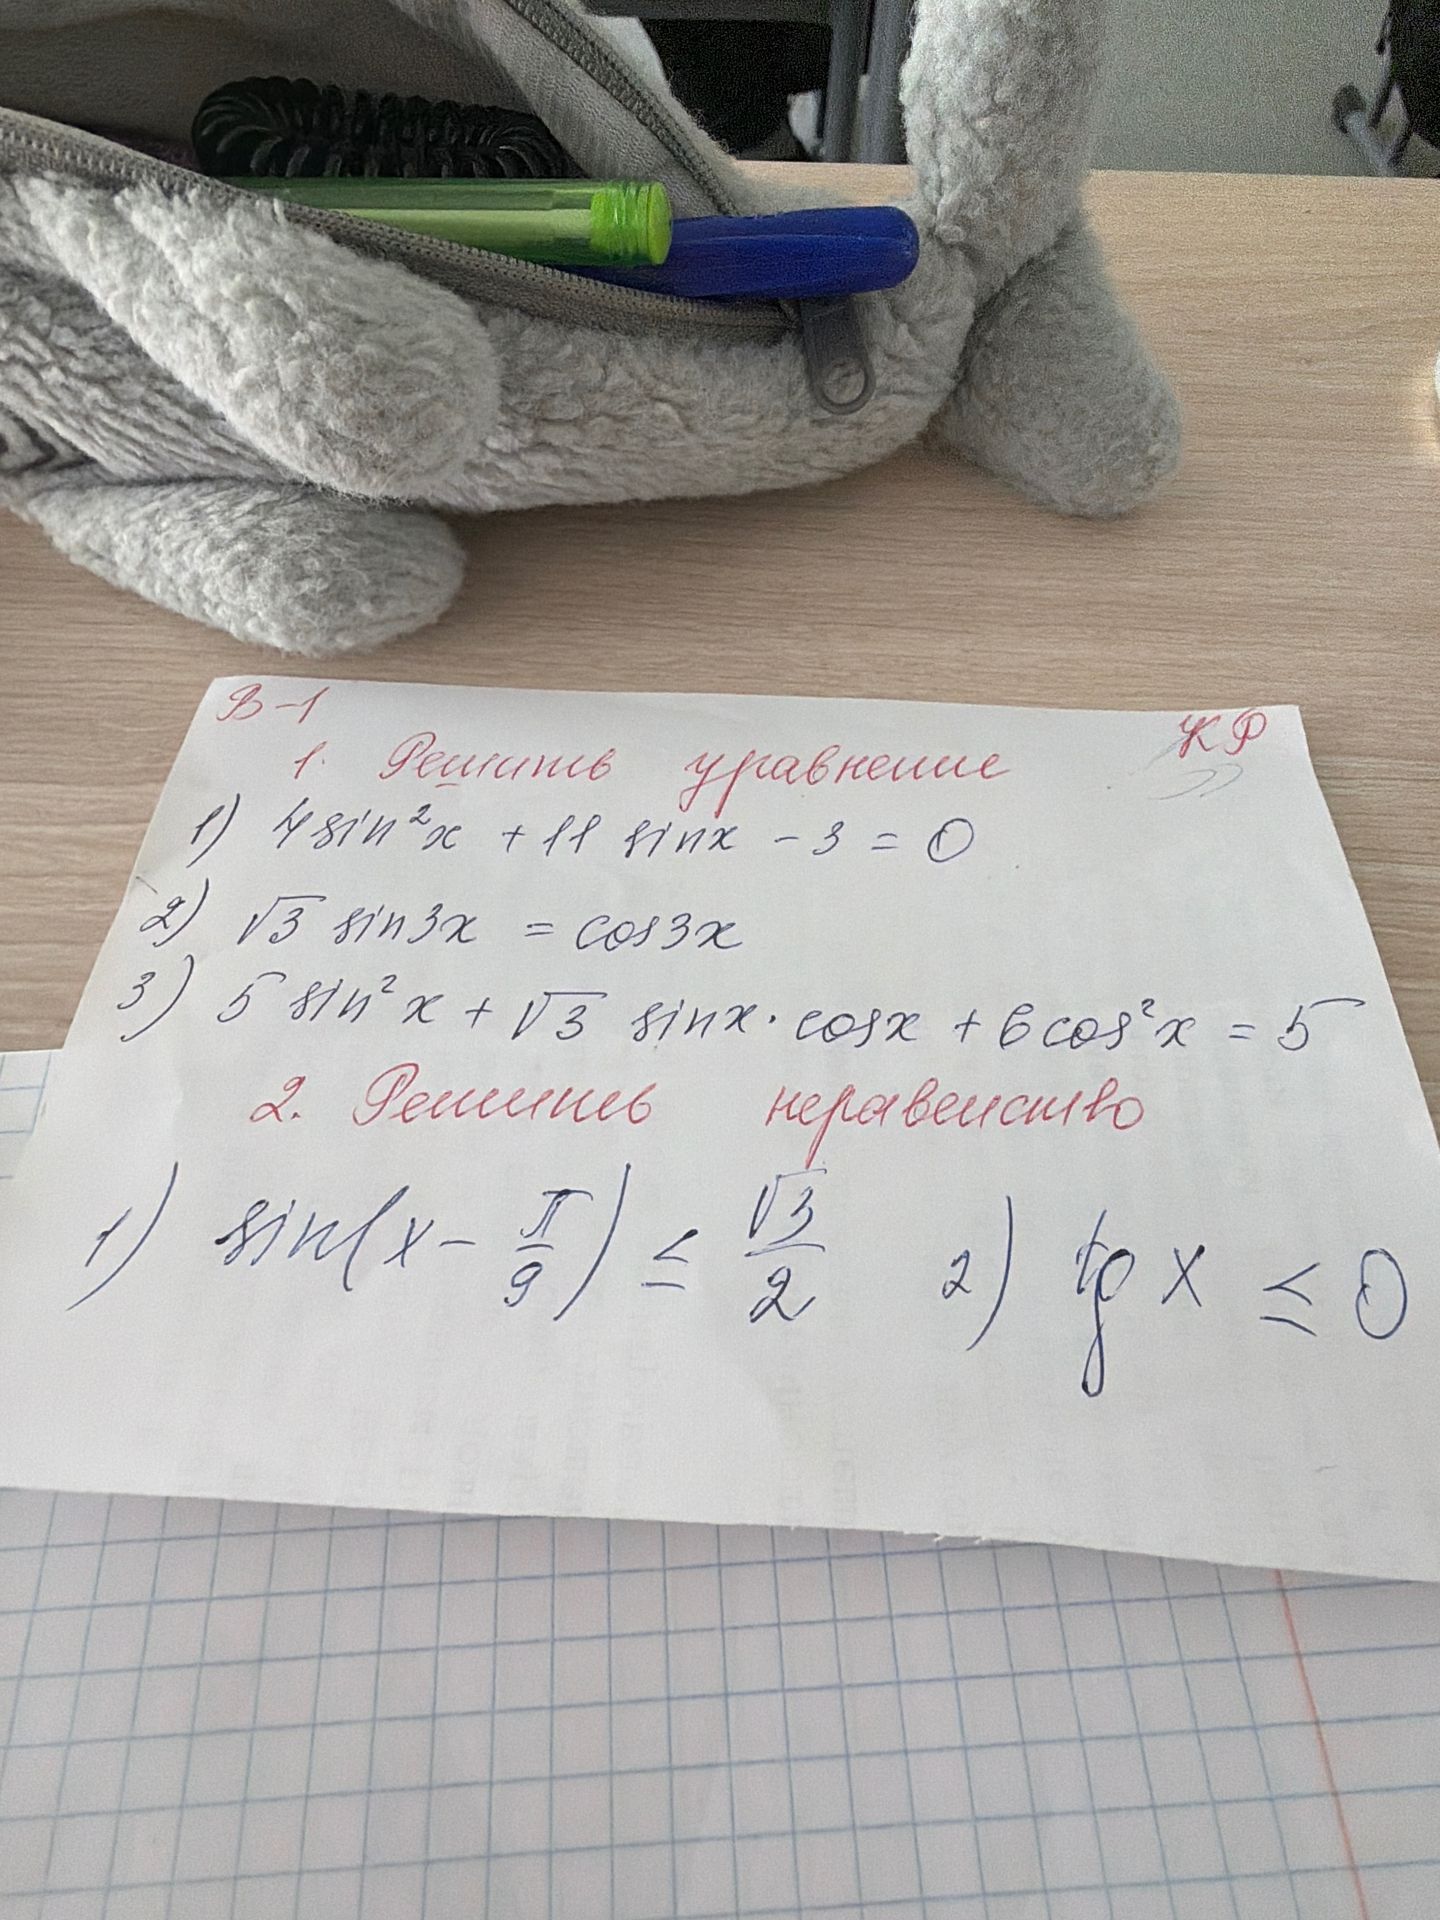 В-1
КР
1. Решить уравнение
1) 4 sin²x + 11 sinx - 3 = 0
2) √3 sin3x = cos3x
3) 5 sin²x + √3 sinx · cosx + 6 cos²x = 5
2. Решить неравенство
1) sin(x - π/9) ≤ √3/2 2) tg x ≤ 0